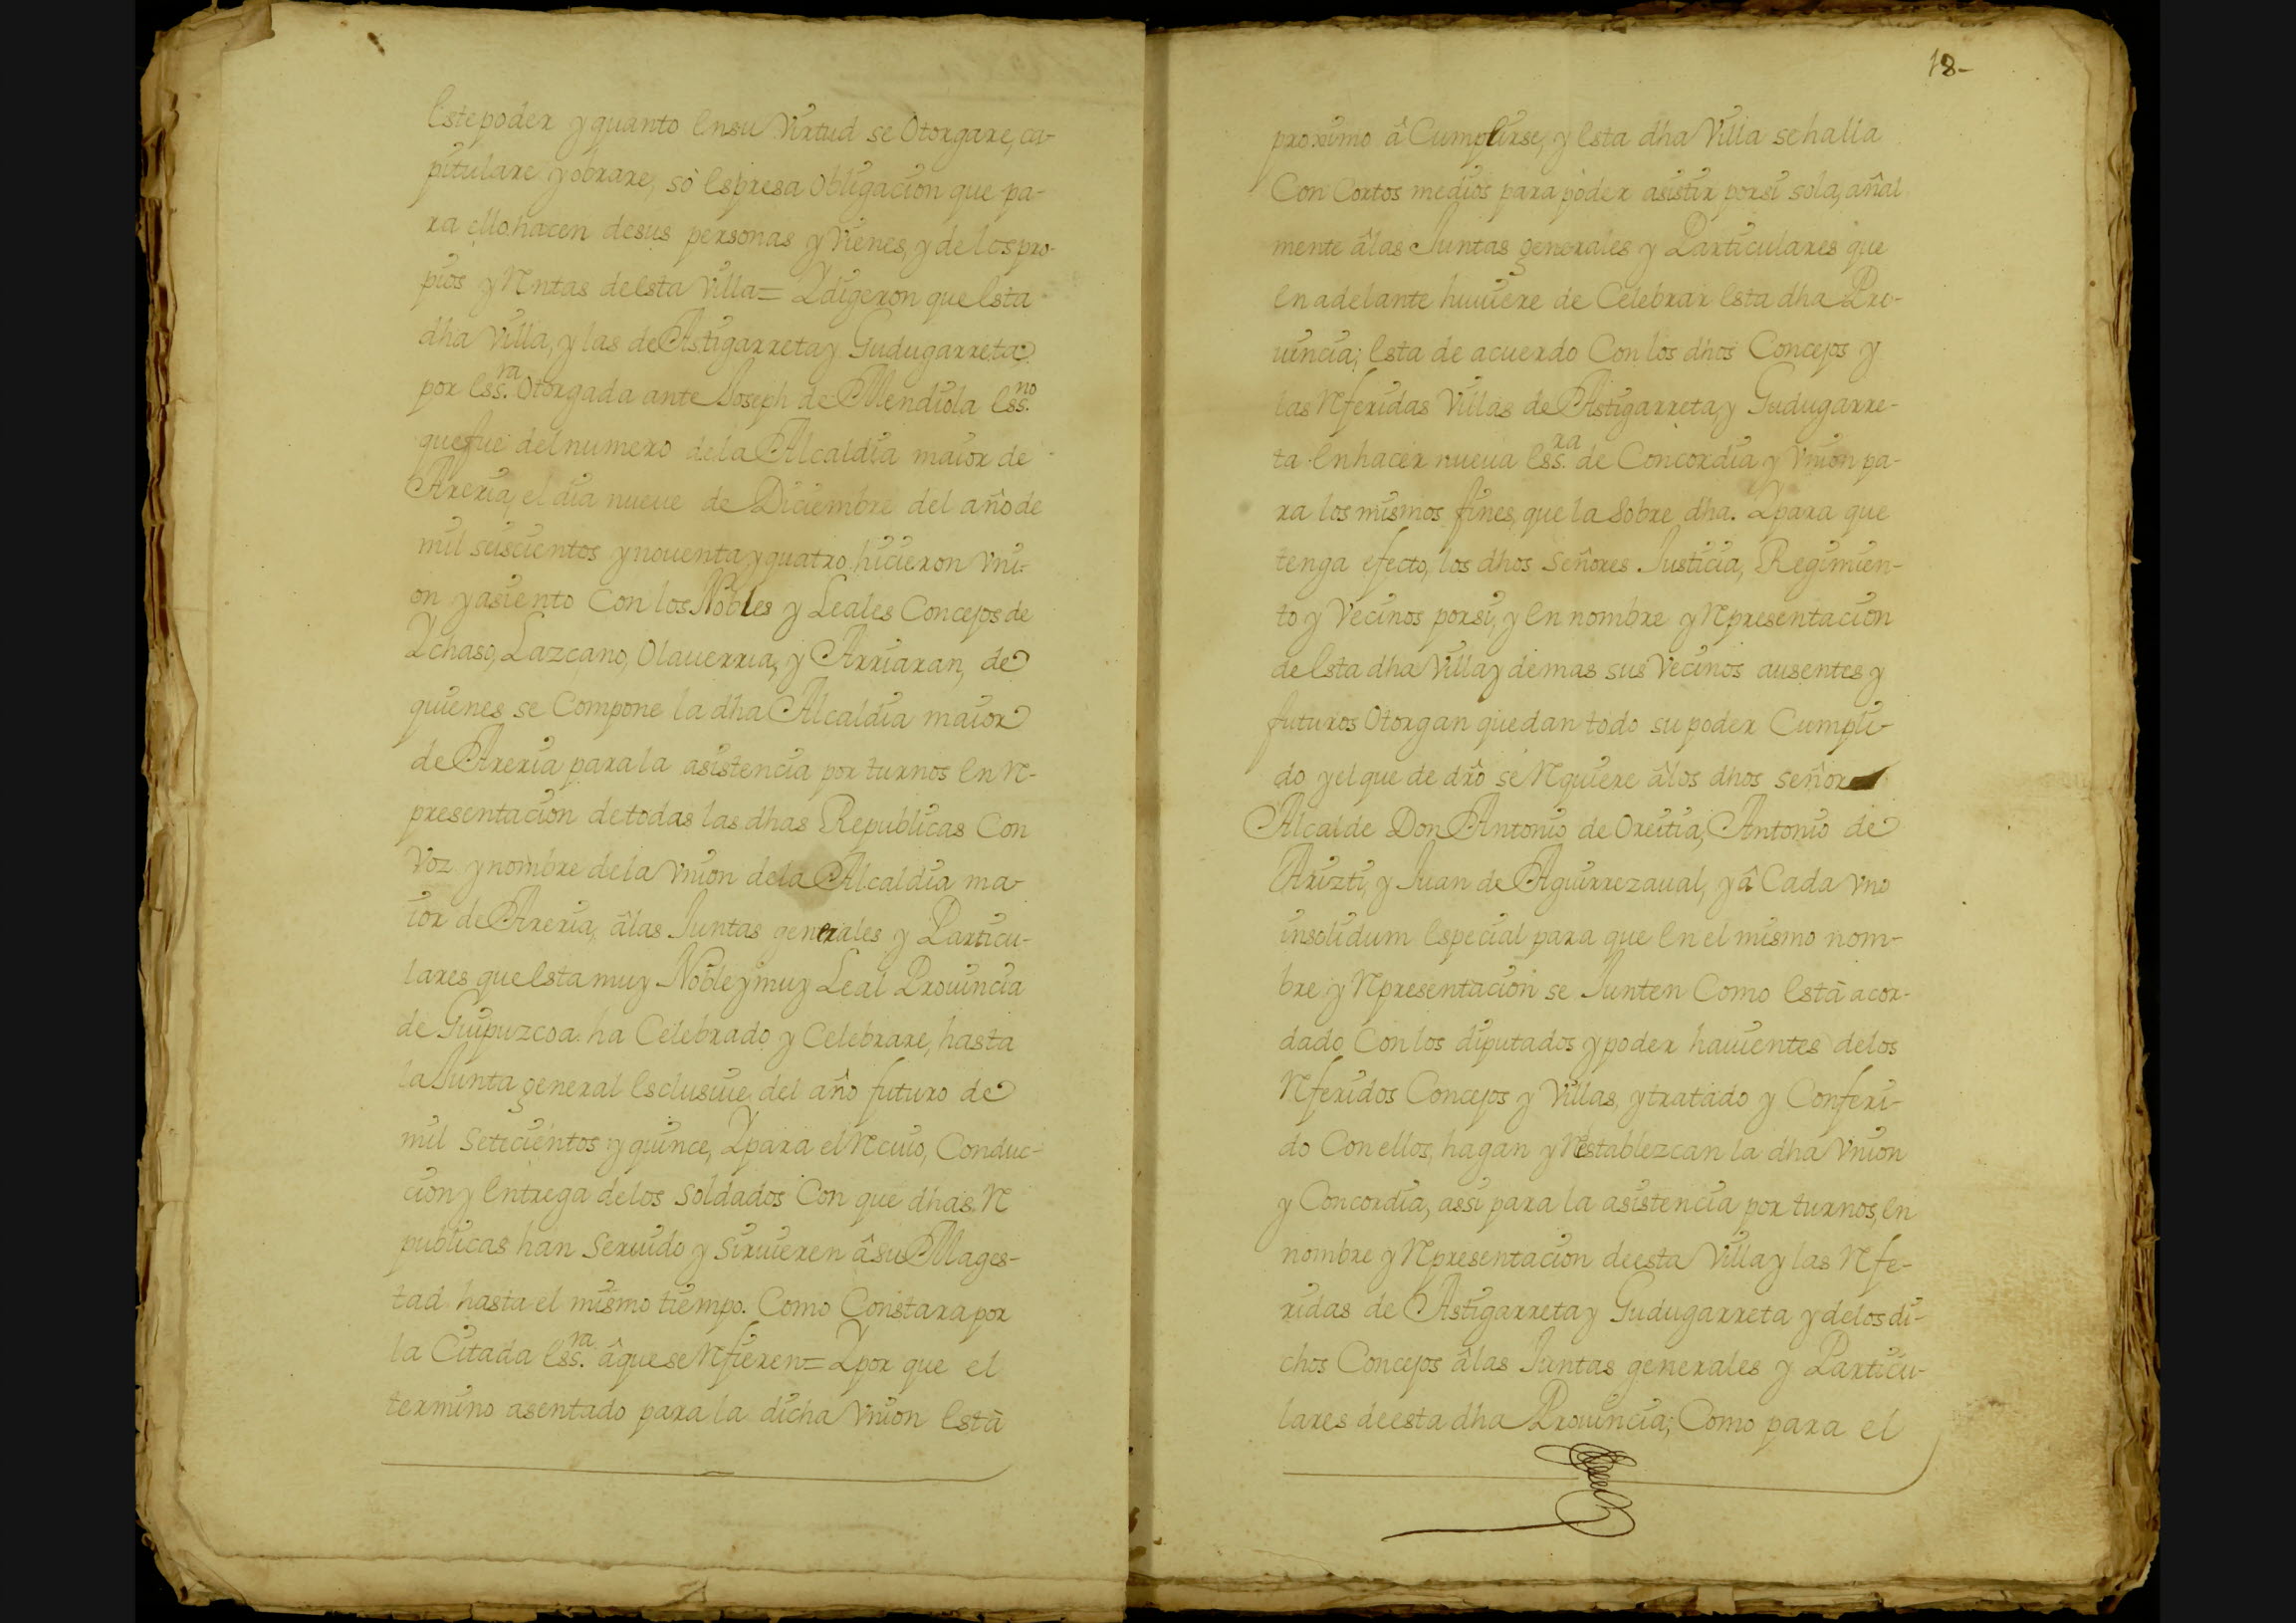 Estepoder y quanto Ensu Virtud se Otorgare, ca-
pitulare y obrare, só Espresa Obligacion que pa-
ra ello hacen desus personas y Vienes, y delos pro-
pios y Rentas deesta Villa= Ydigeron que Esta
dha Villa, y las de Astigarreta y Gudugarreta
por Ess.ra Otorgada ante Joseph de Mendiola Ess.no
que fue delnumero dela Alcaldia maior de
Areria, el dia nueue de Diciembre del año de
mil seiscientos y nouenta y quatro hicieron Vni-
on y asiento Con los Nobles y Leales Concejos de
Ychaso, Lazcano, Olauerria, y Arriaran, de
quienes se Compone la dha Alcaldia maior
de Areria parala asistencia por turnos En Re-
presentacion detodas las dhas Republicas Con
Voz y nombre dela Vnion dela Alcaldia ma-
ior de Areria, âlas Juntas generales y Particu-
lares que Esta muy Noble y muy Leal Prouincia
de Guipuzcoa ha Celebrado y Celebrare, hasta
la Junta general Esclusiue del año futuro de
mil Setecientos y quince, Ypara el Reciuo, Conduc-
cion y Entrega delos Soldados Con que dhas Re
publicas han Seruido y Siruieren âsu Mages-
tad hasta el mismo tiempo. Como Constara por
la Citada Ess.ra âque se Refieren= Ypor que el
termino asentado para la dicha Vnion Està
18-
proximo â Cumplirse, y Esta dha Villa se halla
Con Cortos medios para poder asistir porsi sola, añal
mente âlas Juntas generales y Particulares que
En adelante huuiere de Celebrar Esta dha Pro-
uincia; Esta de acuerdo Con los dhos Concejos y
las Referidas Villas de Astigarreta, y Gudugarre-
ta En hacer nueua Ess.ra de Concordia y Vnion pa-
ra los mismos fines, que la Sobre dha. Ypara que
tenga efecto, los dhos Señores Justicia, Regimien-
to y Vecinos porsi, y En nombre y Representacion
deEsta dha Villa y demas sus Vecinos ausentes y
futuros Otorgan quedan todo su poder Cumpli-
do y el que de dr̂o se Requiere âlos dhos señor
Alcalde Don Antonio de Oreitia, Antonio de
Arizti, y Juan de Aguirrezaual, y â Cada Vno
insolidum Especial para que En el mismo nom-
bre y Representacion se Junten Como Està acor-
dado Con los diputados y poder hauientes delos
Referidos Concejos y Villas, y tratado y Conferi-
do Con ellos, hagan y Restablezcan la dha Vnion
y Concordia, assi para la asistencia por turnos, En
nombre y Representacion deesta Villa y las Refe-
ridas de Astigarreta y Gudugarreta y delos di-
chos Concejos âlas Juntas generales y Particu-
lares deesta dha Prouincia; Como para el